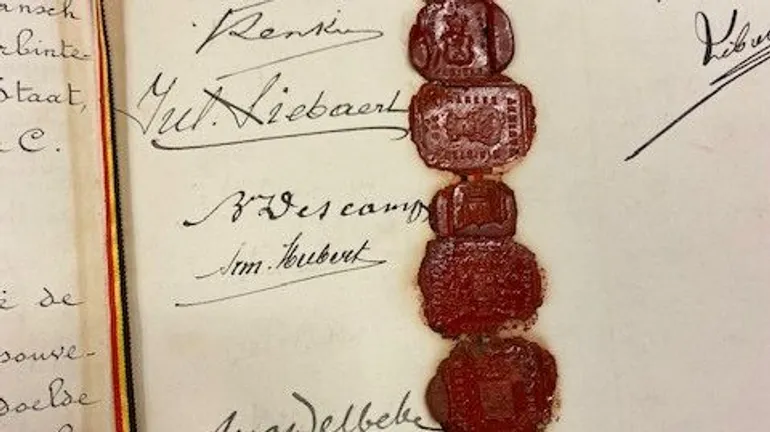 ansch
rbinte-
Staat,
C.
é de
souve-
doelde
Renkin
Jul. Liebaert
Bn Descamps
Arm. Hubert
Aug Delbeke